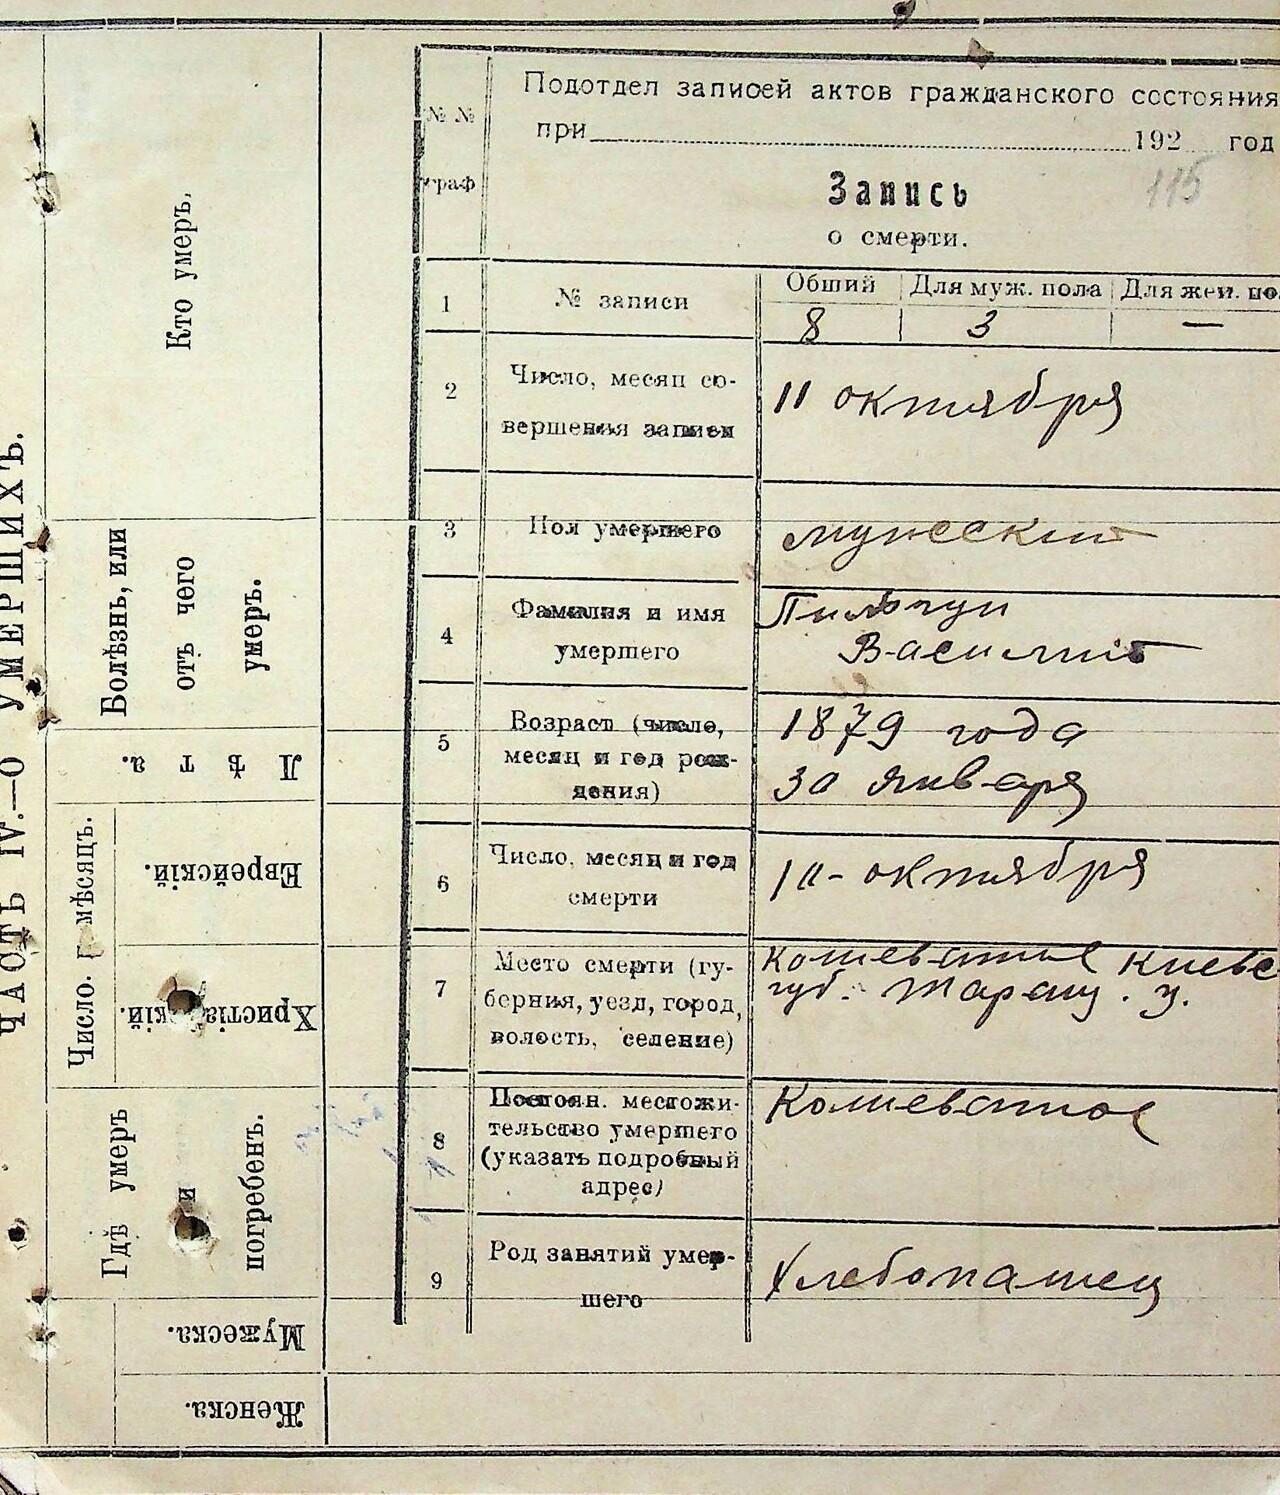 ЧАСТЬ IV.—О УМЕРШИХЪ.
Кто умеръ.
Болѣзнь, или
отъ чего
умеръ.
Лѣта.
Число и мѣсяцъ.
Еврейскій.
Христіанскій.
Гдѣ умеръ
и
погребенъ.
Мужеска.
Женска.
№ №
граф
Подотдел записей актов гражданского состояния
при 192 год
115
Запись
о смерти.
1 № записи
Общий Для муж. пола Для жен. по
8 3 —
2 Число, месяц со-
вершения записи
11 октября
3 Пол умершего
мужеский
4 Фамилия и имя
умершего
Пильгун
Василий
5 Возраст (число,
месяц и год рож-
дения)
1879 года
30 января
6 Число, месяц и год
смерти
10 - октября
7 Место смерти (гу-
берния, уезд, город,
волость, селение)
Кошеватое Киевс
губ. Таращ. у.
8 Постоян. местожи-
тельство умершего
(указать подробный
адрес)
Кошеватое
9 Род занятий умер-
шего
Хлебопашец